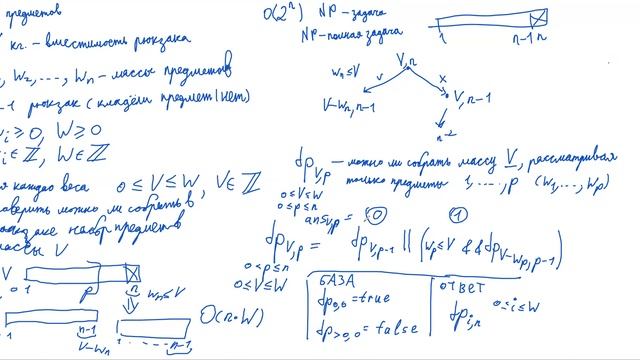 предметов
кг. – вместимость рюкзака
w₂, ..., wₙ – массы предметов
-1 рюкзак (кладём предмет | нет)
≥ 0, W ≥ 0
∈ ℤ, W ∈ ℤ
каждого веса 0 ≤ V ≤ W, V ∈ ℤ
можно ли собрать в
набор предметов
массы V
V
0 1 p n wₙ ≤ V
n-1
V-wₙ
1 n-1
O(n·W)
O(2ⁿ) NP – задача
NP – полная задача
1 n-1 n
V, n
wₙ ≤ V v x
V-wₙ, n-1 V, n-1
n-2
dp_{V,p} – можно ли собрать массу V, рассматривая
только предметы 1, ..., p (w₁, ..., w_p)
0 ≤ V ≤ W
0 ≤ p ≤ n
ans_{V,p} = 0 1
dp_{V,p} = dp_{V,p-1} || (w_p ≤ V && dp_{V-w_p, p-1})
0 < p ≤ n
0 ≤ V ≤ W
БАЗА
dp_{0,0} = true
dp_{>0,0} = false
ОТВЕТ
dp_{i,n} 0 ≤ i ≤ W